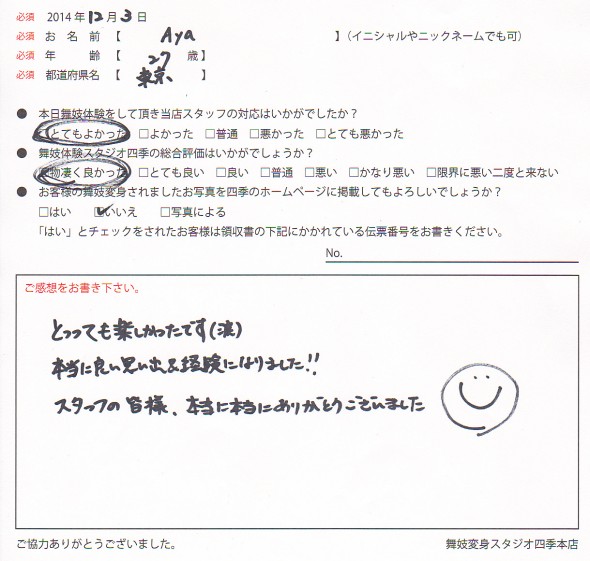 必須 2014年12月3日
必須 お名前【 Aya 】(イニシャルやニックネームでも可)
必須 年齢【 27 歳】
必須 都道府県名【 東京、 】
● 本日舞妓体験をして頂き当店スタッフの対応はいかがでしたか?
□とてもよかった □よかった □普通 □悪かった □とても悪かった
● 舞妓体験スタジオ四季の総合評価はいかがでしょうか?
物凄く良かった □とても良い □良い □普通 □悪い □かなり悪い □限界に悪い二度と来ない
● お客様の舞妓変身されましたお写真を四季のホームページに掲載してもよろしいでしょうか?
□はい ☑いいえ □写真による
「はい」とチェックをされたお客様は領収書の下記にかかれている伝票番号をお書きください。
No.
ご感想をお書き下さい。
とっっても楽しかったです(涙)
本当に良い思い出&経験になりました!!
スタッフの皆様、本当に本当にありがとうございました
ご協力ありがとうございました。
舞妓変身スタジオ四季本店